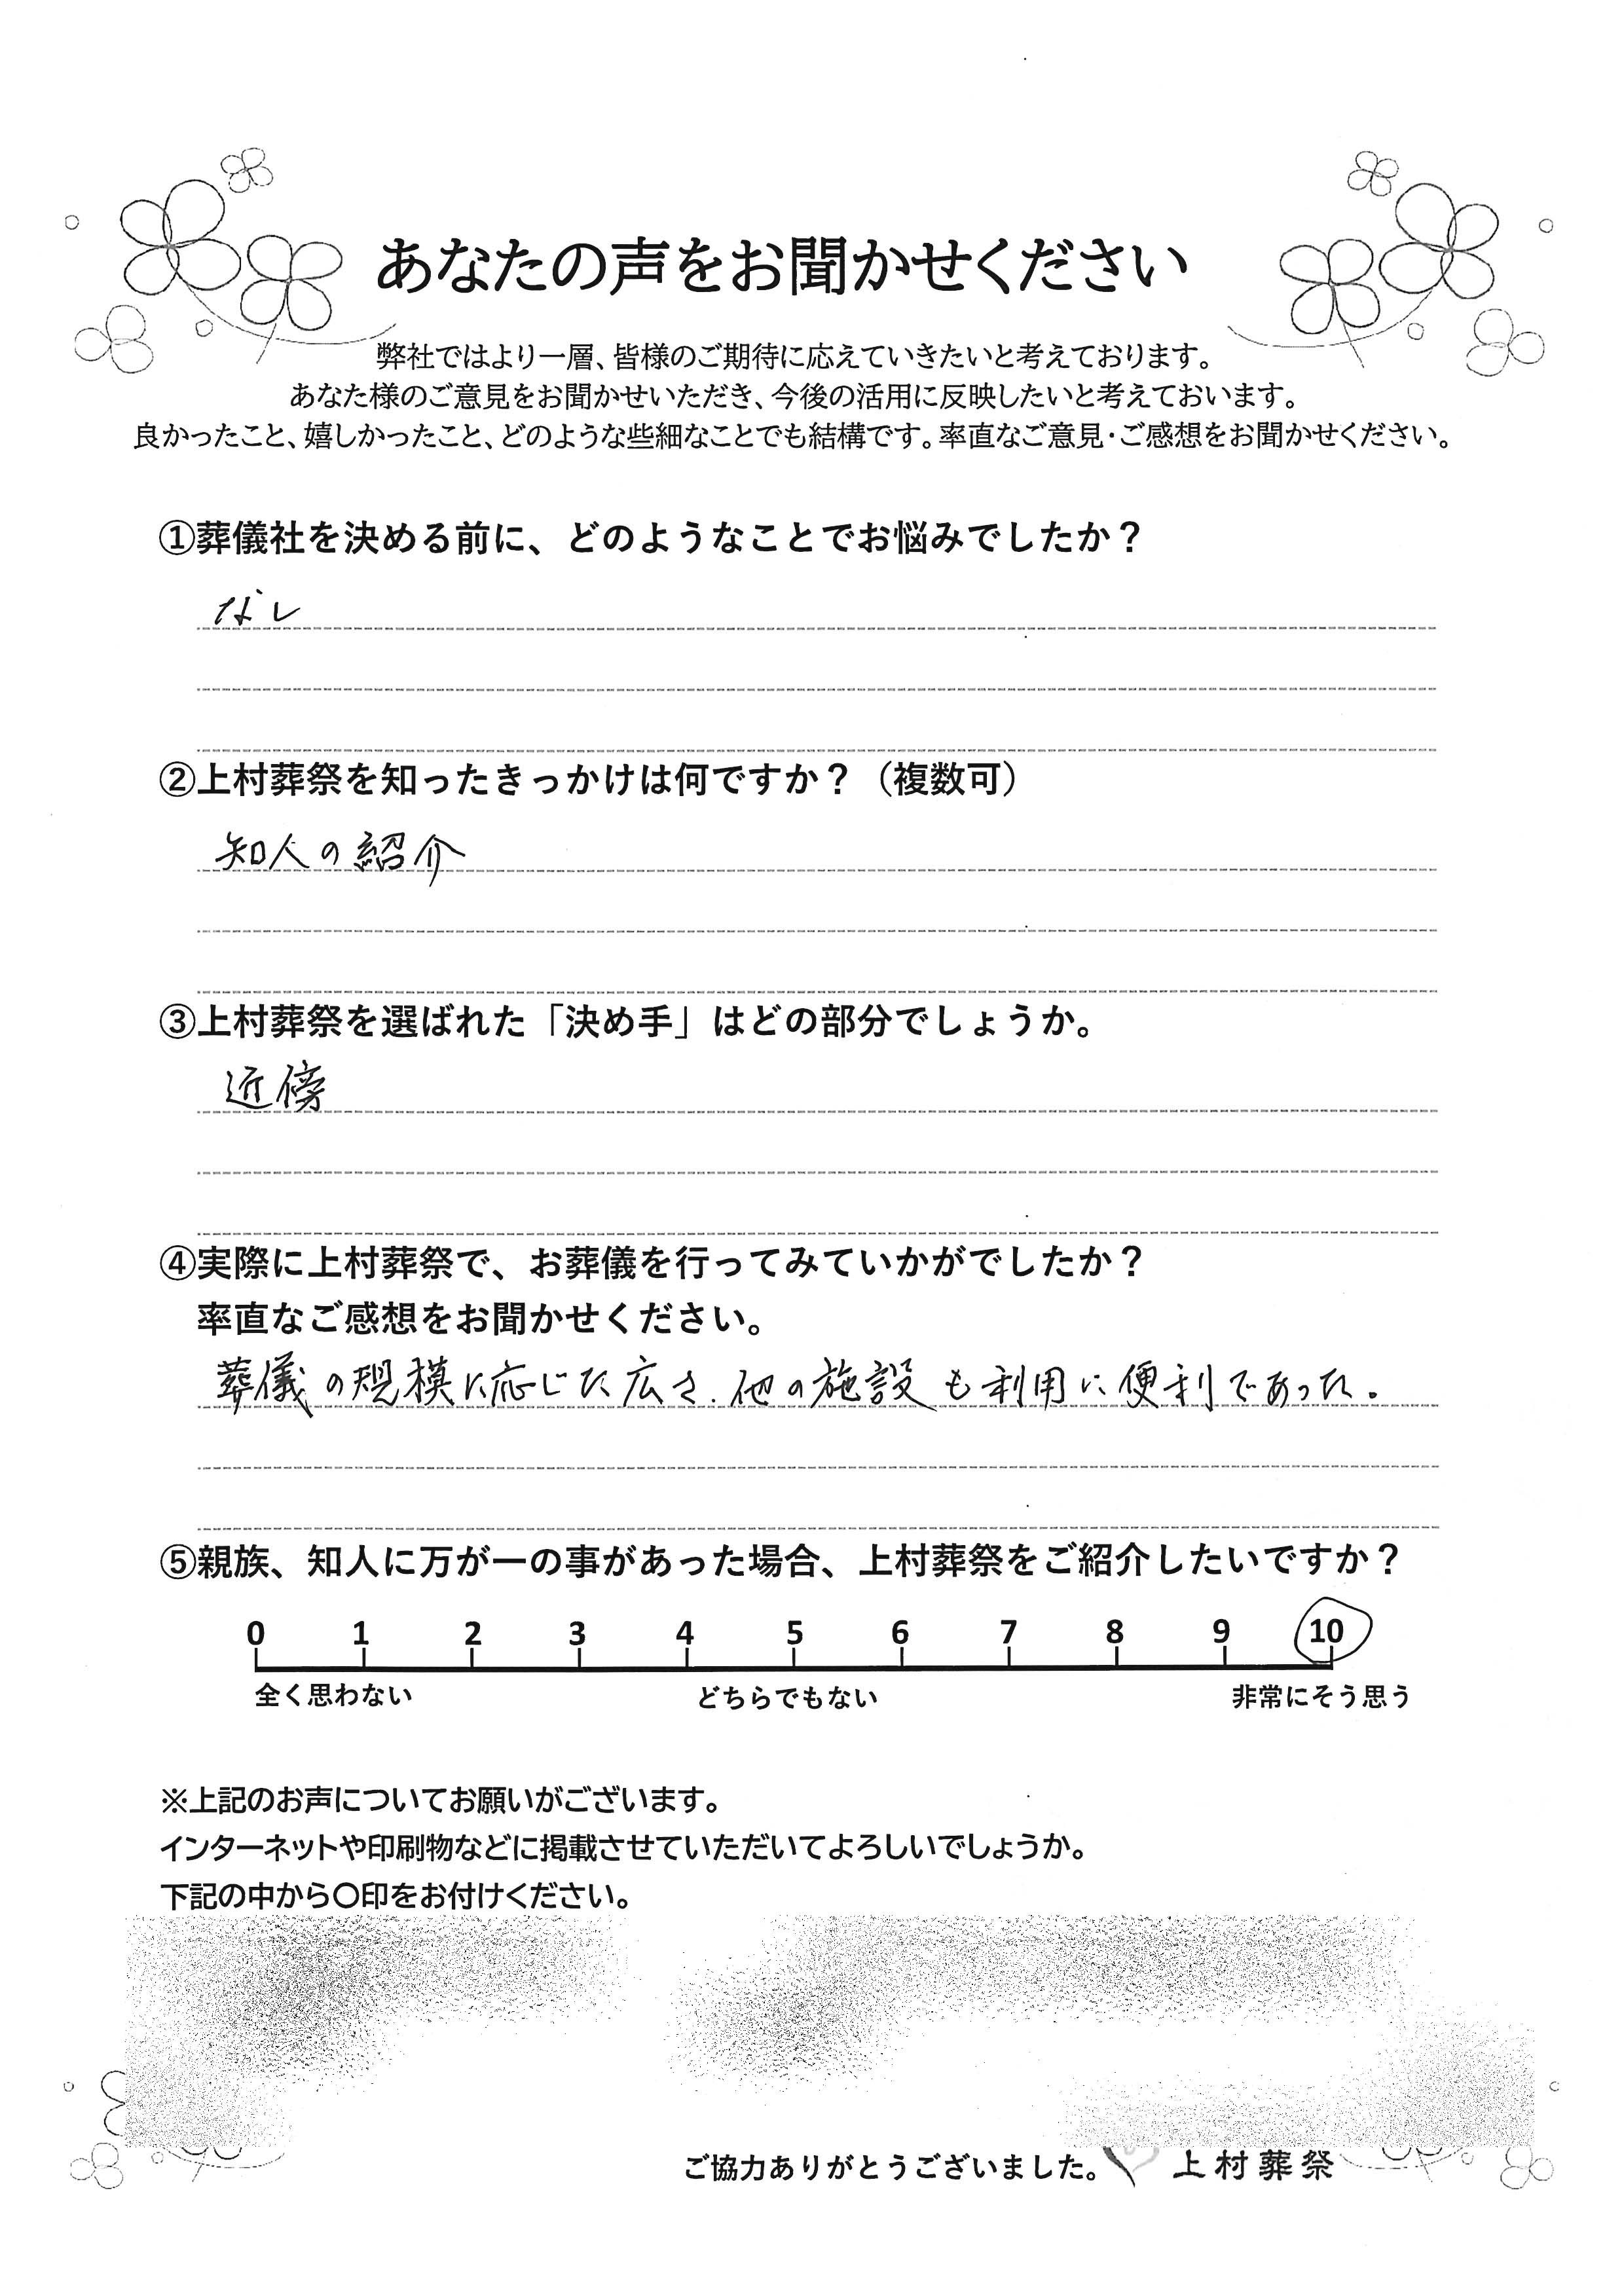 あなたの声をお聞かせください
弊社ではより一層、皆様のご期待に応えていきたいと考えております。
あなた様のご意見をお聞かせいただき、今後の活用に反映したいと考えておいます。
良かったこと、嬉しかったこと、どのような些細なことでも結構です。率直なご意見・ご感想をお聞かせください。
①葬儀社を決める前に、どのようなことでお悩みでしたか？
なし
②上村葬祭を知ったきっかけは何ですか？（複数可）
知人の紹介
③上村葬祭を選ばれた「決め手」はどの部分でしょうか。
近傍
④実際に上村葬祭で、お葬儀を行ってみていかがでしたか？
率直なご感想をお聞かせください。
葬儀の規模に応じた広さ、他の施設も利用に便利であった。
⑤親族、知人に万が一の事があった場合、上村葬祭をご紹介したいですか？
0 1 2 3 4 5 6 7 8 9 10
全く思わない どちらでもない 非常にそう思う
※上記のお声についてお願いがございます。
インターネットや印刷物などに掲載させていただいてよろしいでしょうか。
下記の中から〇印をお付けください。
ご協力ありがとうございました。 上村葬祭